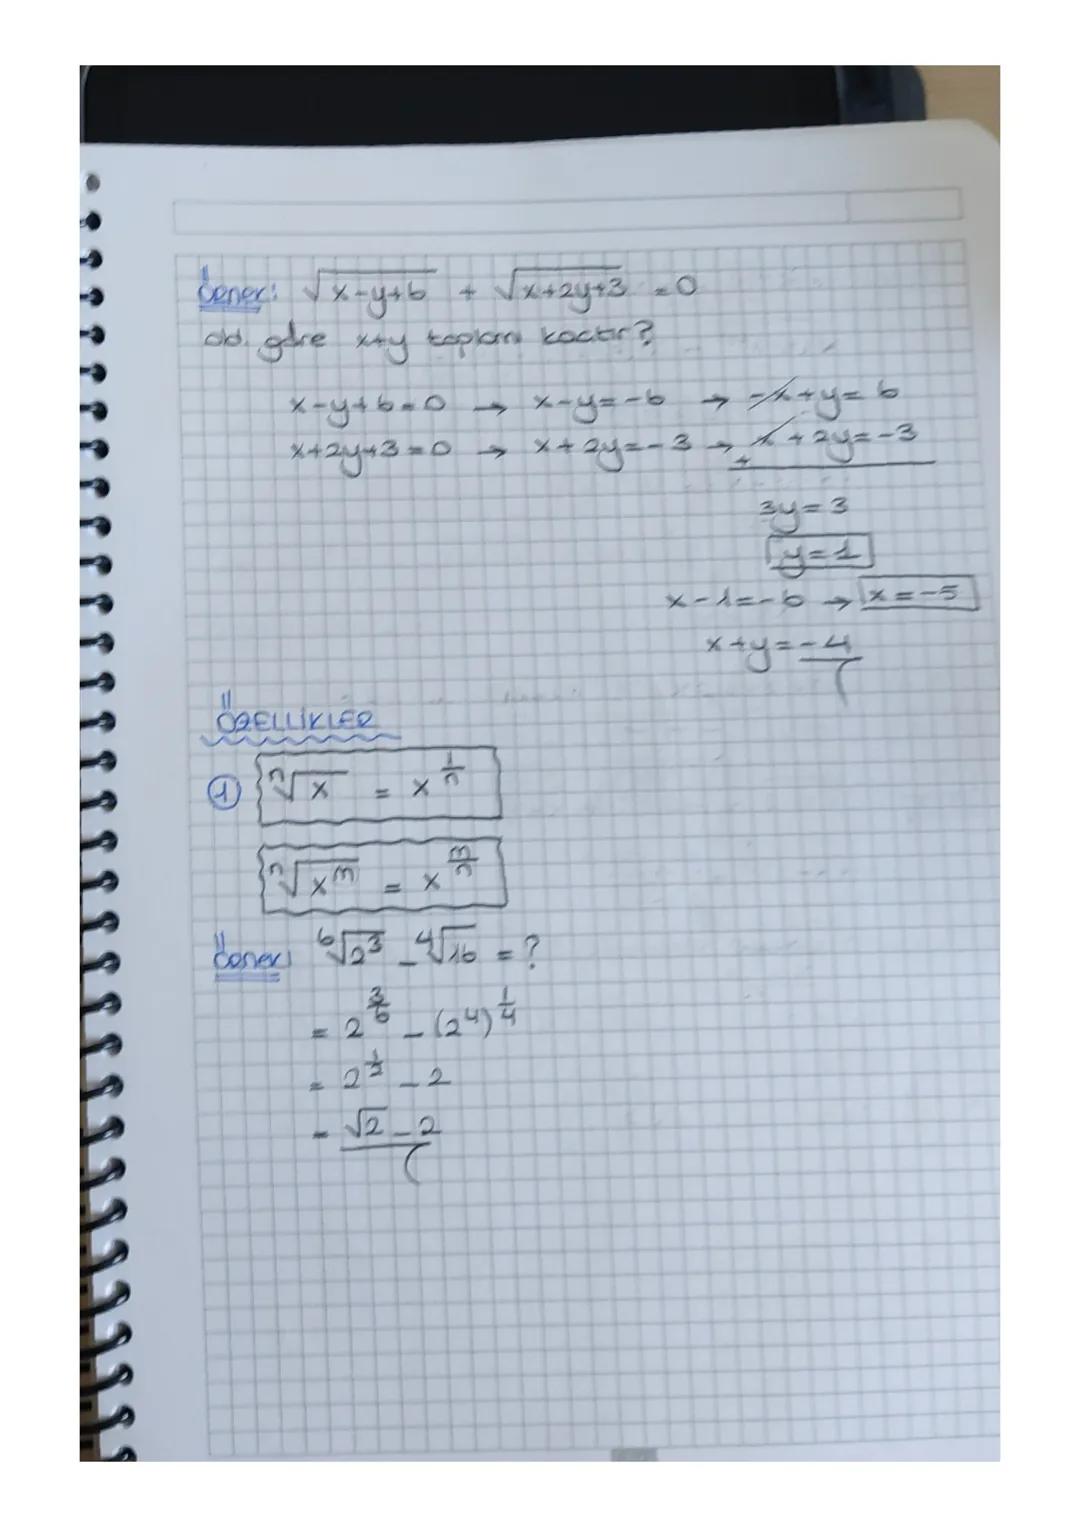 Örnek: √(x-y+6) + √(x+2y+3) = 0
old. göre x+y toplamı kaçtır?
x-y+6=0 → x-y=-6 → -x+y=6
x+2y+3=0 → x+2y=-3 → x+2y=-3
+
3y=3
y=1
x-1=-6 → x=-5
x+y=-4
ÖZELLİKLER
① ⁿ√x = x^(1/n)
ⁿ√(x^m) = x^(m/n)
Örnek: ⁶√(2³) - ⁴√16 = ?
= 2^(3/6) - (2⁴)^(1/4)
= 2^(1/2) - 2
= √2 - 2